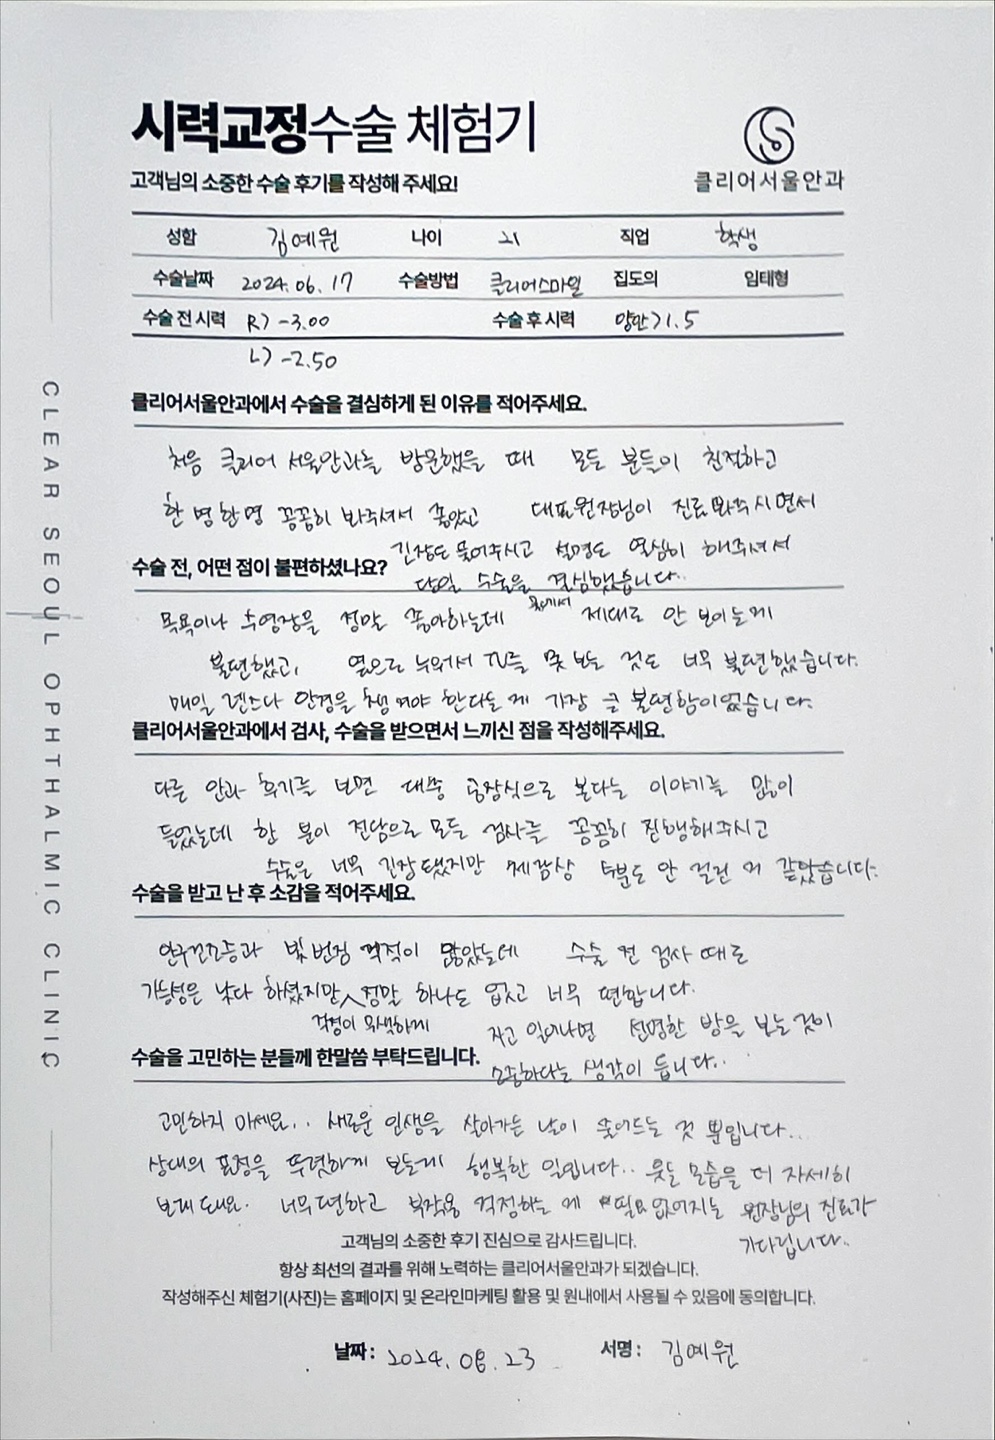 시력교정수술 체험기
고객님의 소중한 수술 후기를 작성해 주세요!
클리어서울안과
성함 김예원 나이 21 직업 학생
수술날짜 2024. 06. 17 수술방법 클리어스마일 집도의 임태형
수술 전 시력 R) -3.00 수술 후 시력 양안) 1.5
L) -2.50
클리어서울안과에서 수술을 결심하게 된 이유를 적어주세요.
처음 클리어 서울안과를 방문했을 때 모든 분들이 친절하고
한 명 한 명 꼼꼼히 봐주셔서 좋았고 대표원장님이 진료 봐주시면서
긴장도 풀어주시고 설명도 열심히 해주셔서
당일 수술을 결심했습니다..
수술 전, 어떤 점이 불편하셨나요?
목욕이나 수영장을 정말 좋아하는데 물에서 제대로 안 보이는게
불편했고, 옆으로 누워서 TV를 못 보는 것도 너무 불편했습니다.
매일 렌즈나 안경을 챙겨야 한다는 게 가장 큰 불편함이었습니다.
클리어서울안과에서 검사, 수술을 받으면서 느끼신 점을 작성해주세요.
다른 안과 후기를 보면 대충 공장식으로 본다는 이야기를 많이
들었는데 한 분이 전담으로 모든 검사를 꼼꼼히 진행해주시고
수술은 너무 긴장됐지만 체감상 5분도 안 걸린 거 같았습니다.
수술을 받고 난 후 소감을 적어주세요.
안구건조증과 빛 번짐 걱정이 많았는데 수술 전 검사 때도
가능성은 낮다 하셨지만 걱정이 무색하게 정말 하나도 없고 너무 편합니다.
자고 일어나면 선명한 방을 보는 것이
소중하다는 생각이 듭니다..
수술을 고민하는 분들께 한말씀 부탁드립니다.
고민하지 마세요.. 새로운 인생을 살아가는 날이 줄어드는 것 뿐입니다...
상대의 표정을 뚜렷하게 보는게 행복한 일입니다.. 웃는 모습을 더 자세히
보게 돼요. 너무 편하고 부작용 걱정하는 게 필요 없어지는 원장님의 진료가
기다립니다..
고객님의 소중한 후기 진심으로 감사드립니다.
항상 최선의 결과를 위해 노력하는 클리어서울안과가 되겠습니다.
작성해주신 체험기(사진)는 홈페이지 및 온라인마케팅 활용 및 원내에서 사용될 수 있음에 동의합니다.
날짜 : 2024. 08. 23 서명 : 김예원
CLEAR SEOUL OPHTHALMIC CLINIC